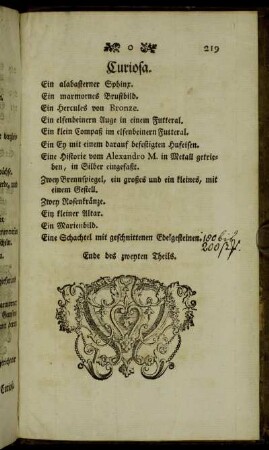 o 219
Curiosa.
Ein alabasterner Sphinx.
Ein marmornes Brustbild.
Ein Hercules von Bronze.
Ein elfenbeinern Auge in einem Futteral.
Ein klein Compaß im elfenbeinern Futteral.
Ein Ey mit einem darauf befestigten Hufeisen.
Eine Historie vom Alexandro M. in Metall getrie-
ben, in Silber eingefaßt.
Zwey Brennspiegel, ein großes und ein kleines, mit
einem Gestell.
Zwey Rosenkränze.
Ein kleiner Altar.
Ein Marienbild.
Eine Schachtel mit geschnittenen Edelgesteinen.
Ende des zweyten Theils.